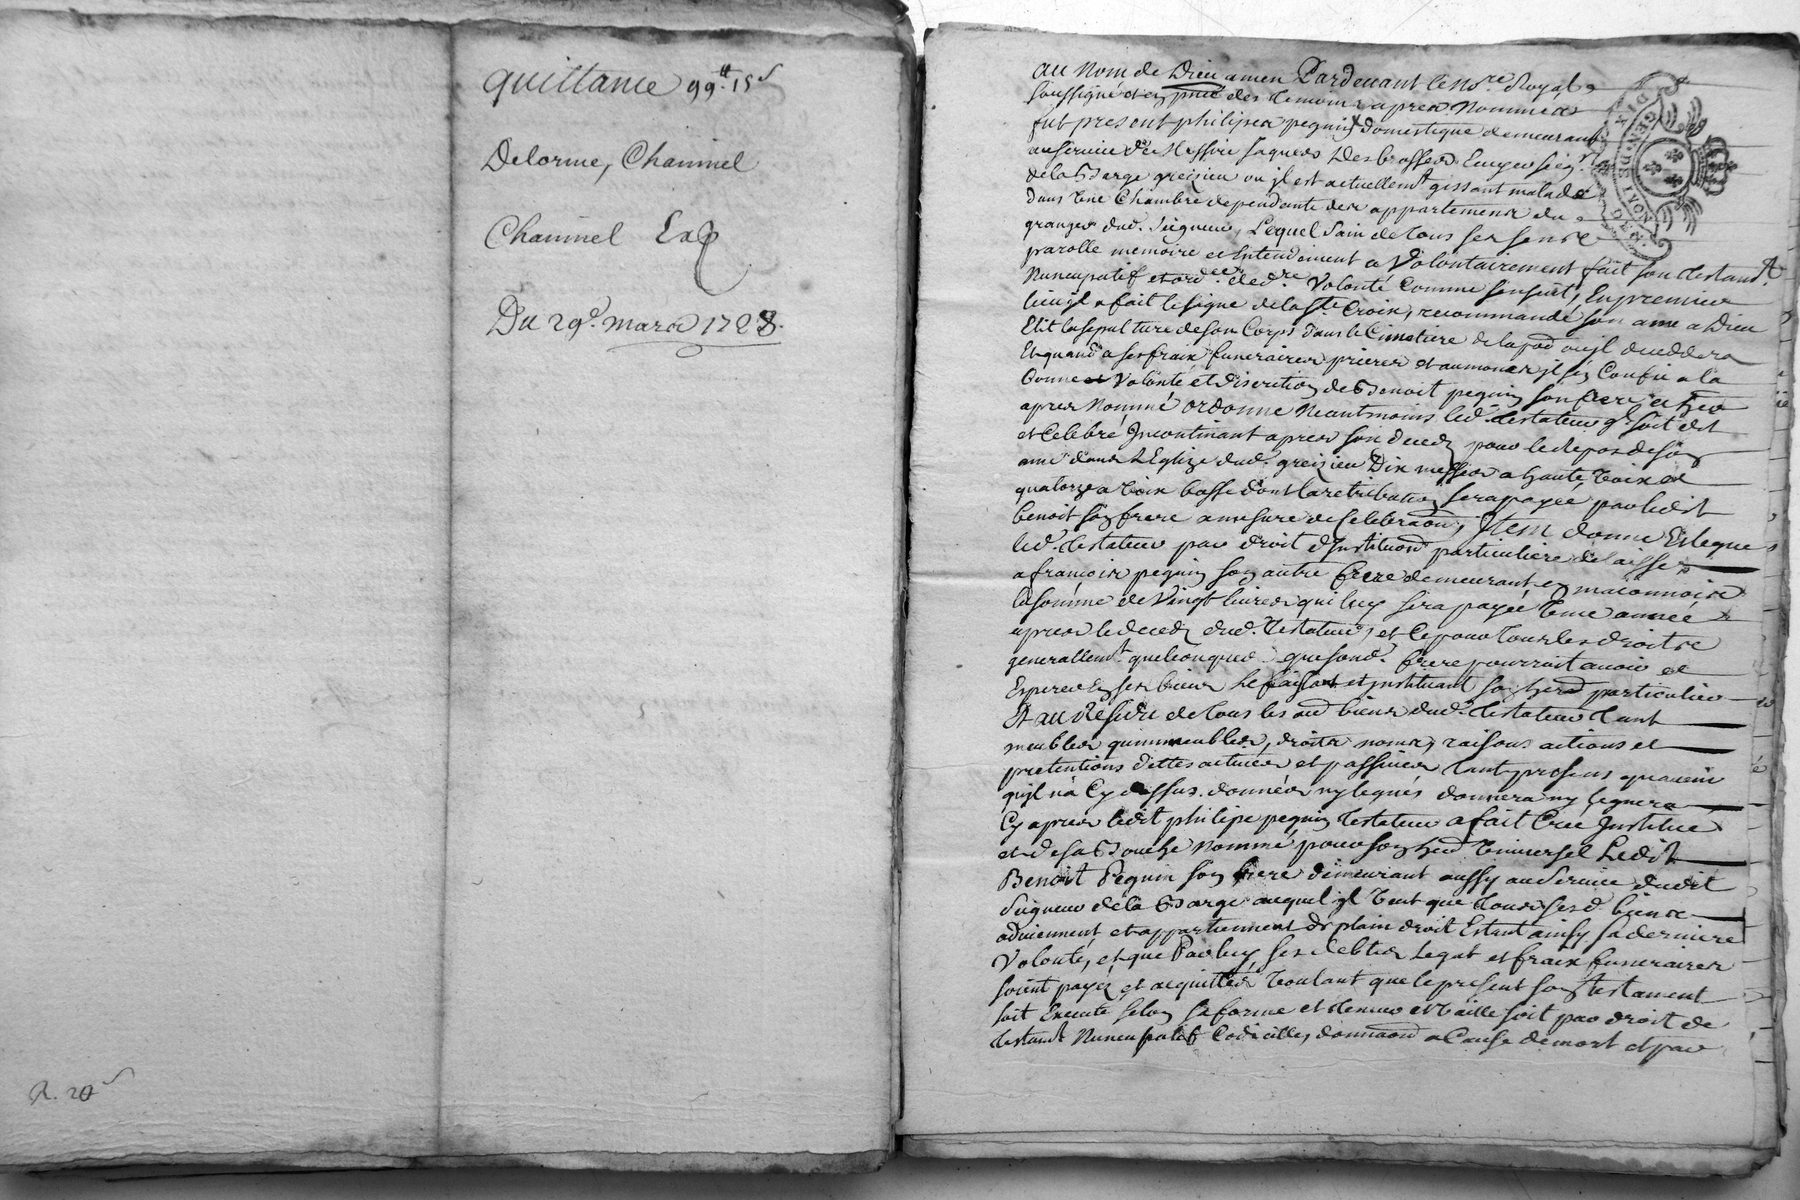 quittance 99.tt 15 s
Delorme, Chaninel
Chaninel Exp
Du 29e. mars 1728.
R. 20 s
au nom de Dieu amen Pardevant le nore. Royal
soussigné et en pnce des temoins apres Nommes
fut present philipes peguin domestique demeurant
au service de Messire Jaques Desbrosses Ecuyer seigr.
de la Barge greizieu ou jl est actuellemt gissant malade
dans Une Chambre dependante des appartemens du
granger dud. Seigneur, Lequel sain de tous ses sens
parolle memoire et Entendement a Volontairement fait son testamt.
Nuncupatif et ordce. de dre. Volonté Comme s'ensuit, En premier
lieu jl a fait le signe de la Ste Croix, recommandé son ame a Dieu
Elit la sepulture de son Corps dans le Cimetiere de la pad ou jl decedera
Et quand a ses fraix funeraires prieres et aumones jl sen Confie a la
bonne Volonté et discretion de Benoit peguin son frere et her
apres Nommé ordonne Neantmoins led. testateur q'l soit dit
et Celebré Jncontinant apres son deced pour le repos de son
ame dans L'Eglize dud. greizieu Dix messes a haute Voix et
quatorze a Voix basse dont la retribution sera payée par ledit
benoit son frere a mesure de Celebraon, Jtem donne Et legue
led. testateur par droit d'Jnstituon particuliere delaisse
a francois peguin son autre frere demeurant en maconnois
la somme de Vingt livres qui luy sera payée Une année
apres le deced dud. testateur, et Ce pour tous les droits
generallemt quelconques que sond. frere pourroit avoir et
Esperer En ses biens Le faisant et jnstituant son herer particulier
Et au Residu de tous les aud biens dud. testateur tant
meubles qu'immeubles, droits noms, raisons actions et
pretentions dettes actives et passives tant presens qu'avenir
qu'jl n'a Cy dessus donnés ny legués donnera ny leguera
Cy apres ledit philipe peguin testateur a fait Cree Jnstitue
et de sa Bouche Nommé pour son her Universel Ledit
Benoit Peguin son frere demeurant aussy au Service dudit
Seigneur de la Barge auquel jl Veut que tous ses d. biens
adviennent et appartiennent de plain droit Estant ainsy sa derniere
Volonté, et que Par luy ses debtes Legat et fraix funeraires
soient payés et acquittés Voulant que le present son testament
soit Executé selon sa forme et teneur et Vaille soit par droit de
testamt Nuncupatif Codicille, donnaon a Cause de mort et par